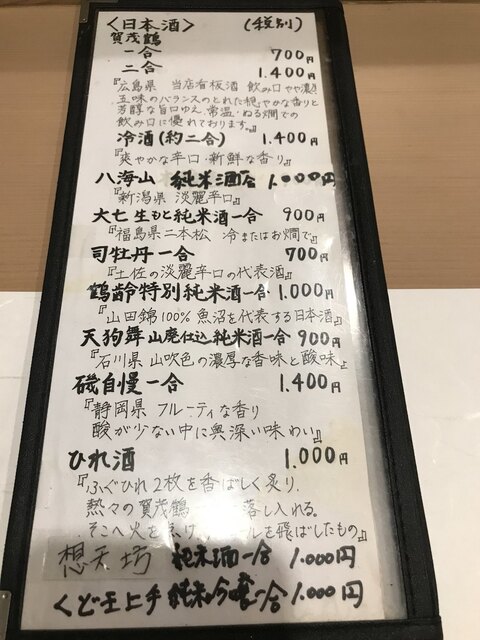 <日本酒> (税別)
賀茂鶴
一合 700円
二合 1.400円
『広島県 当店看板酒 飲み口やや濃
五味のバランスのとれた穏やかな香りと
芳醇な旨口ゆえ、常温・ぬる燗での
飲み口に優れております。』
冷酒(約二合) 1.400円
『爽やかな辛口・新鮮な香り』
八海山 純米酒一合 1.000円
『新潟県 淡麗辛口』
大七 生もと純米酒一合 900円
『福島県二本松 冷またはお燗で』
司牡丹一合 700円
『土佐の淡麗辛口の代表酒』
鶴齢特別純米酒一合 1.000円
『山田錦100% 魚沼を代表する日本酒』
天狗舞 山廃仕込純米酒一合 900円
『石川県 山吹色の濃厚な香味と酸味』
磯自慢一合 1.400円
『静岡県 フルーティな香り
酸が少ない中に奥深い味わい』
ひれ酒 1.000円
『ふぐひれ2枚を香ばしく炙り、
熱々の賀茂鶴 落し入れる。
そこへ火を ルを飛ばしたもの』
想天坊 純米酒一合 1.000円
くどき上手 純米吟醸一合 1.000円